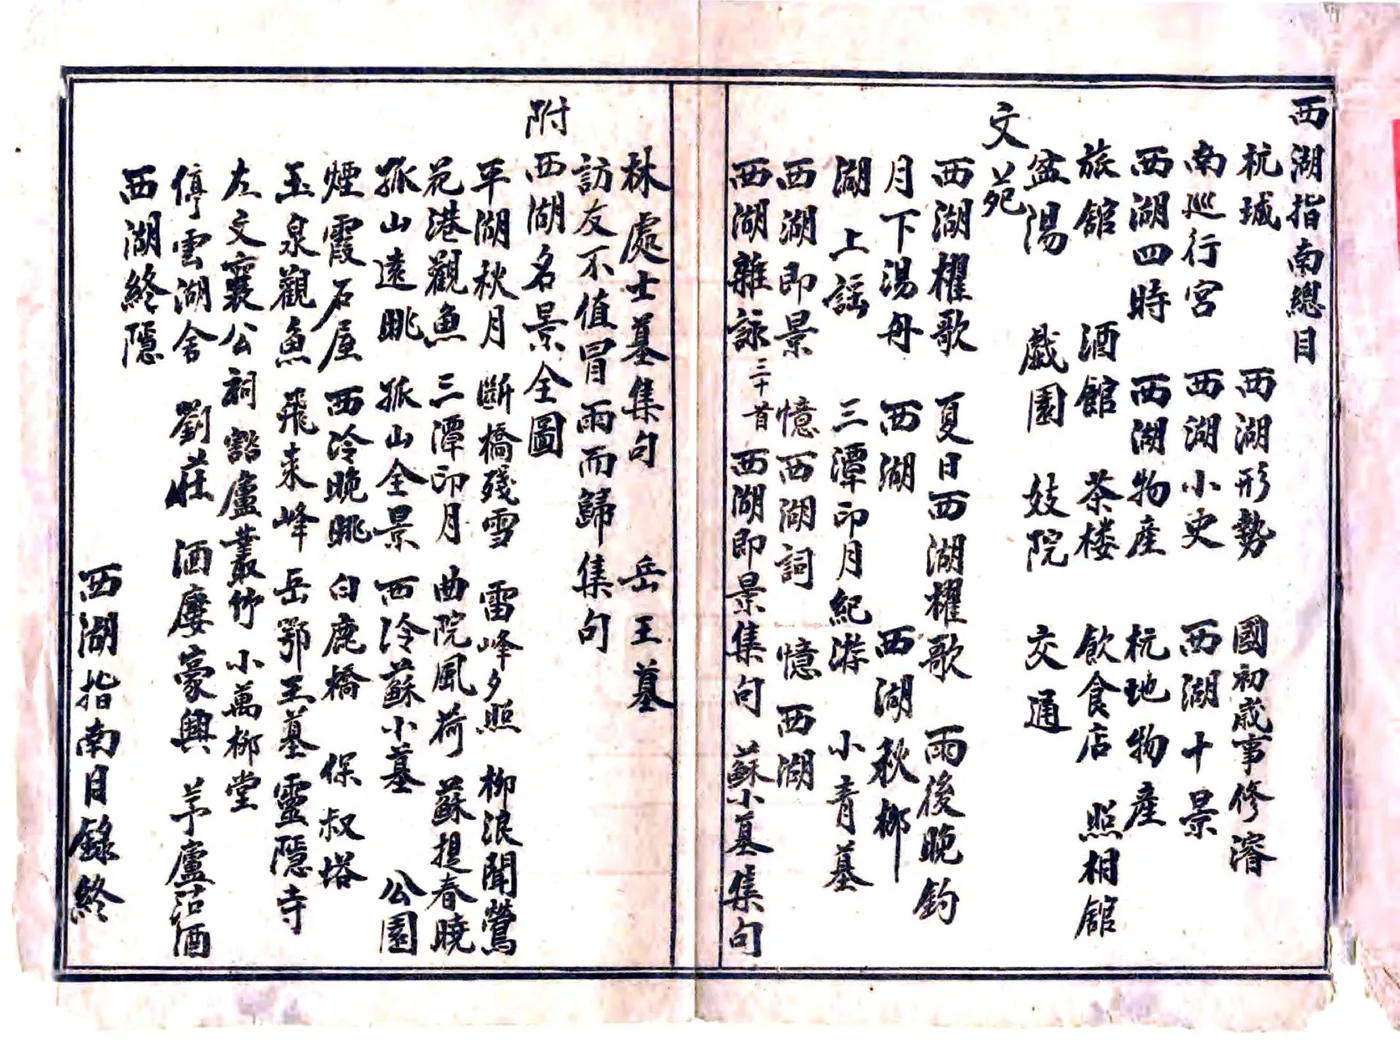 西湖指南總目
杭城 西湖形勢 國初歲事修濬
南巡行宮 西湖小史 西湖十景
西湖四時 西湖物產 杭地物產
旅館 酒館 茶楼 飲食店 照相館
盆湯 戲園 妓院 交通
文苑
西湖櫂歌 夏日西湖櫂歌 雨後晚釣
月下湯舟 西湖 西湖秋柳
湖上謡 三潭印月紀游 小青墓
西湖即景 憶西湖詞 憶西湖
西湖雜詠三十首 西湖即景集句 蘇小墓集句
林處士墓集句 岳王墓
訪友不值冒雨而歸集句
附西湖名景全圖
平湖秋月 斷橋殘雪 雷峰夕照 柳浪聞鶯
花港觀魚 三潭印月 曲院風荷 蘇堤春曉
孤山遠眺 孤山全景 西泠蘇小墓 公園
煙霞石屋 西泠晚眺 白鹿橋 保叔塔
玉泉觀魚 飛来峰 岳鄂王墓 靈隱寺
左文襄公祠 豁廬叢竹 小萬柳堂
停雲湖舍 劉莊 酒廔豪興 茅廬沽酒
西湖終隱
西湖指南目錄終